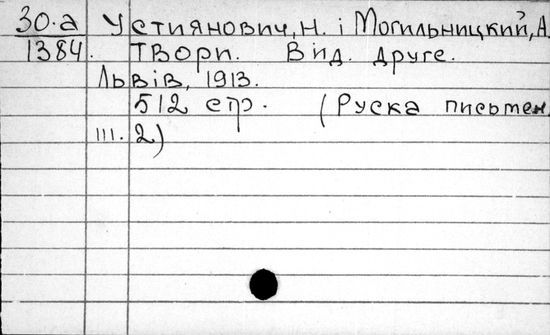 30.а Устиянович, Н. і Могильницкий, А.
1384. Твори. Вид. друге.
Львів, 1913.
512 стр. (Руска письмен.
III. 2.)